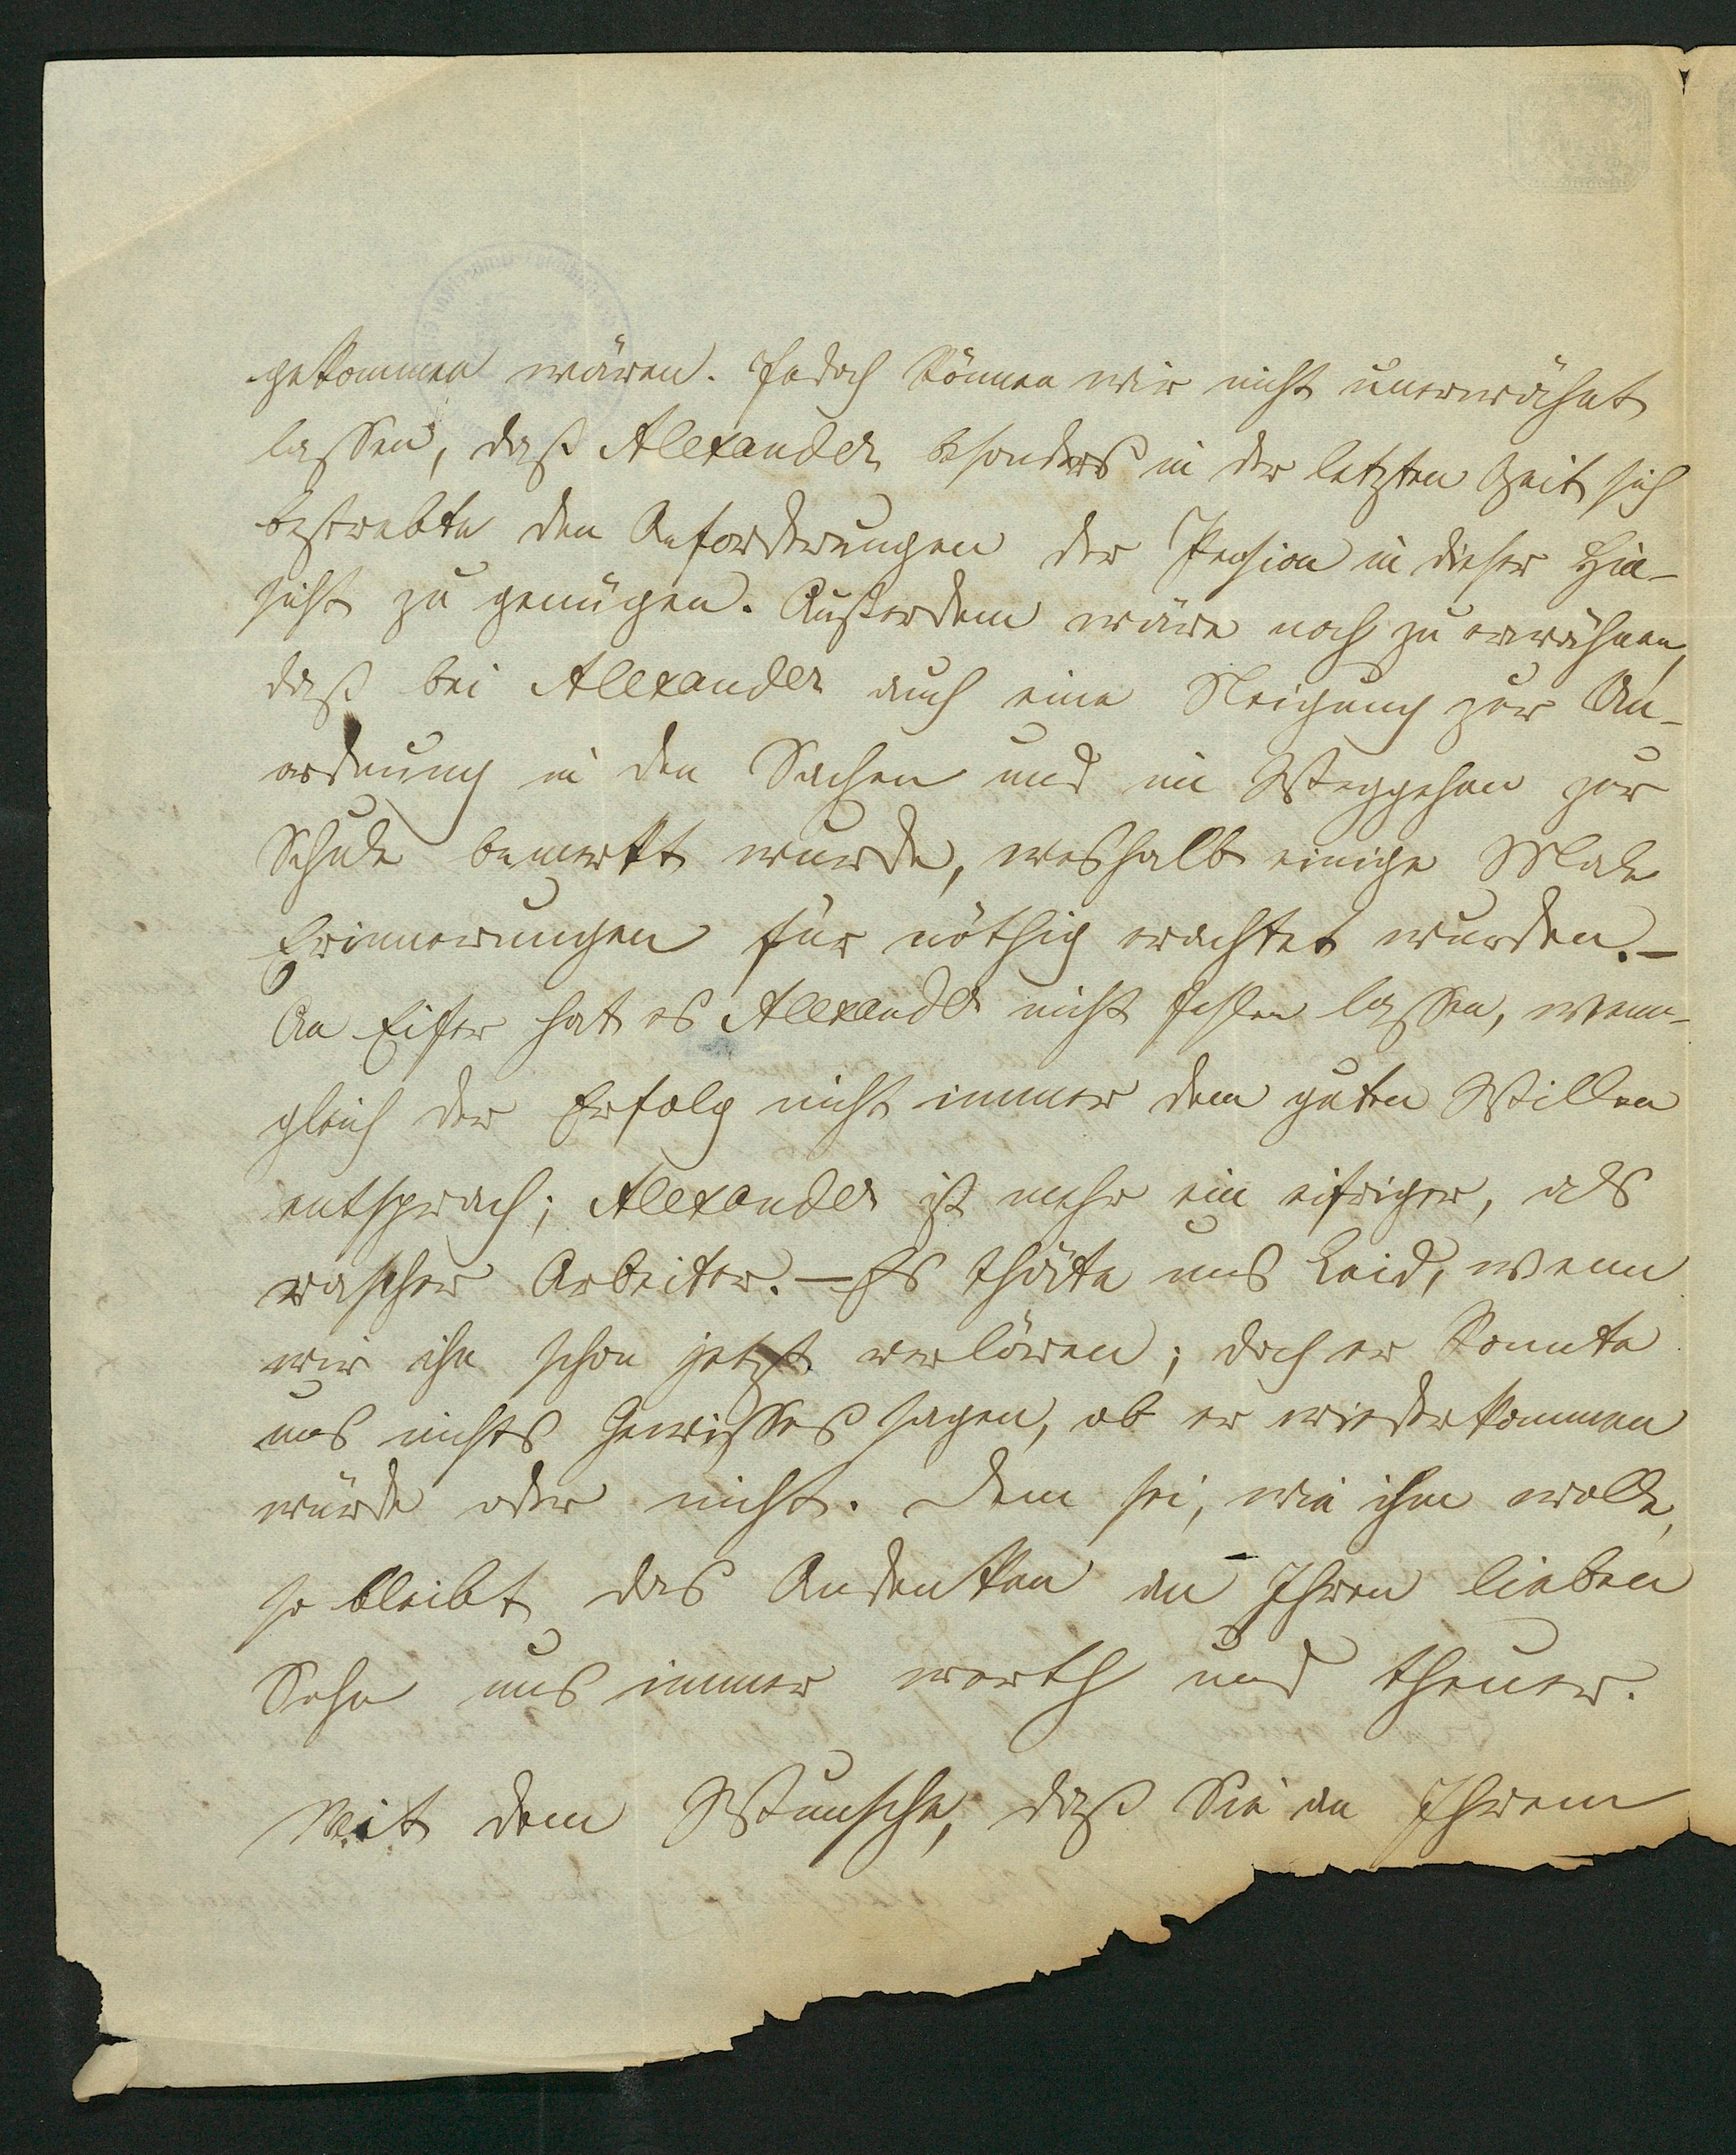 gekommen wären. Jedoch können wir nicht unerwähnt
lassen, daß Alexander besonders in der letzten Zeit sich
bestrebte den Anforderungen der Pension in dieser Hin-
sicht zu genügen. Außerdem wäre noch zu erwähnen,
daß bei Alexander auch eine Neigung zur Un-
ordnung in den Sachen und im Weggehen zur
Schule bemerkt wurde, weshalb einige Male
Erinnerungen für nöthig erachtet wurden. –
An Eifer hat es Alexander nicht fehlen lassen, wenn-
gleich der Erfolg nicht immer dem guten Willen
entsprach; Alexander ist mehr ein eifriger, als
rascher Arbeiter. – Es thäte uns Leid, wenn
wir ihn schon jetzt verlören; doch er konnte
uns nichts Gewisses sagen, ob er wiederkommen
würde oder nicht. Dem sei, wie ihm wolle,
so bleibt das Andenken an Ihren lieben
Sohn uns immer werth und theuer.
Mit dem Wunsche, daß Sie an Ihrem